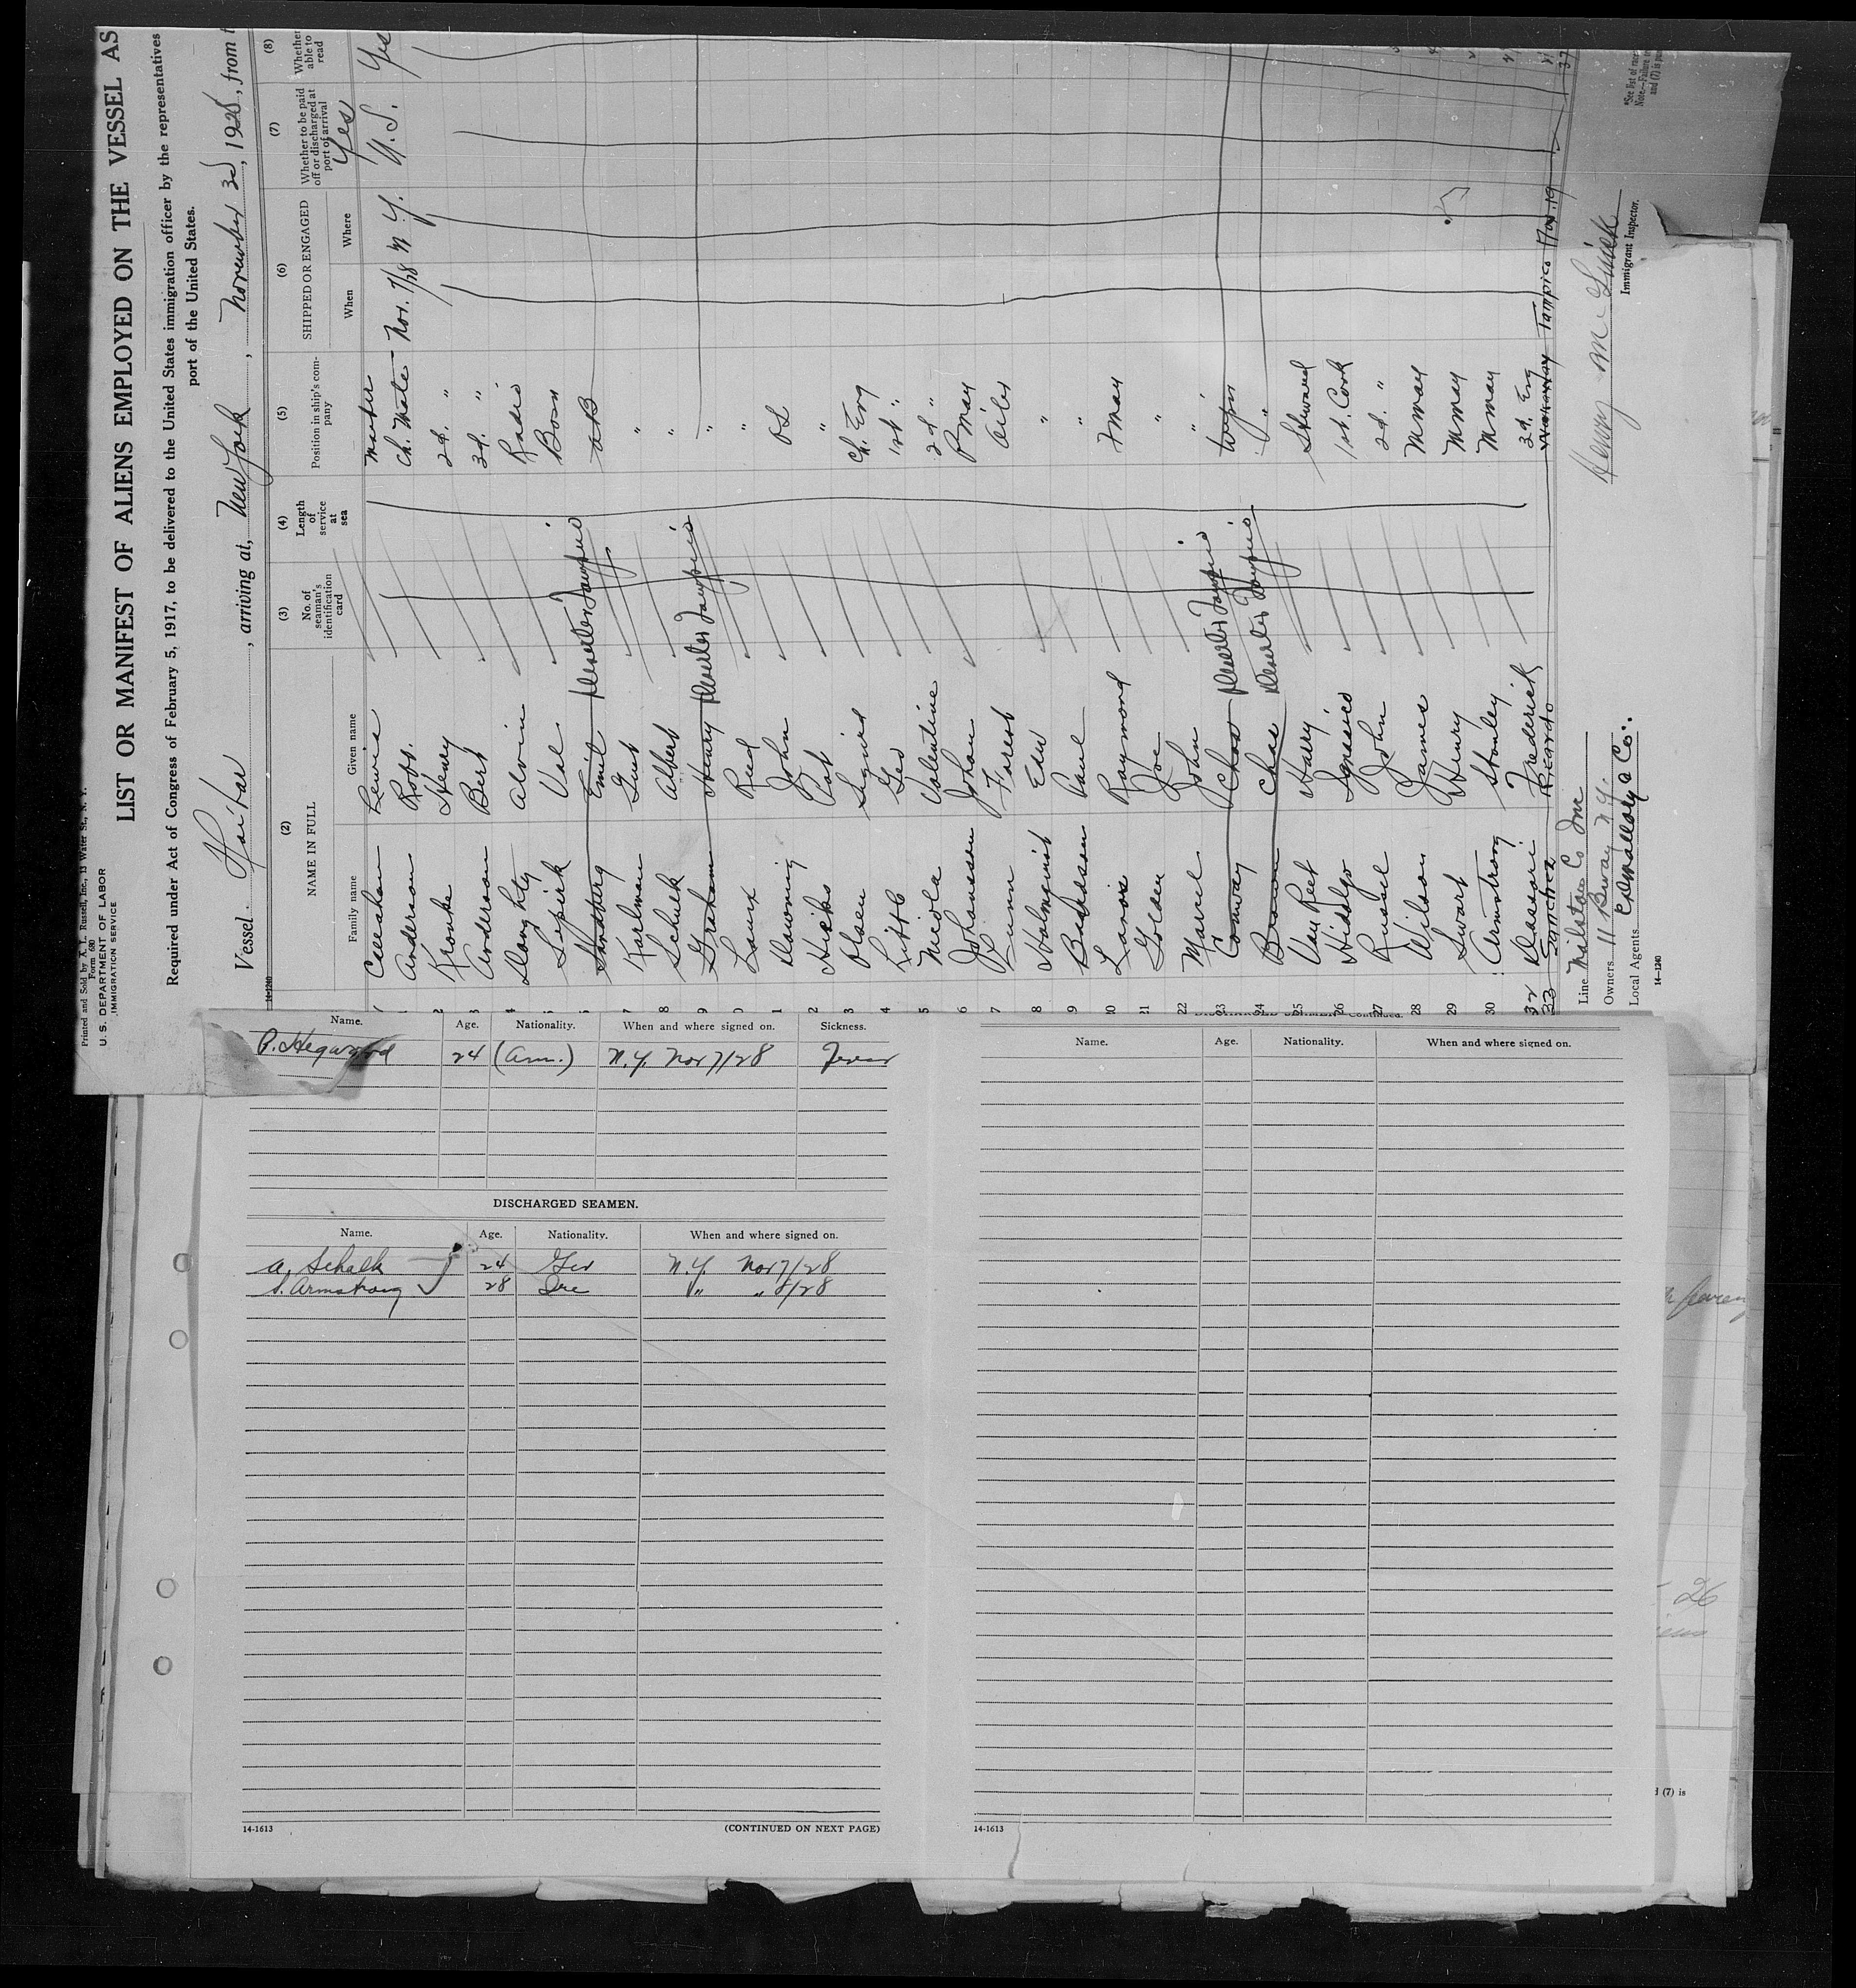 Printed and Sold by A. L. Russell, Inc., 13 Water St., N. Y.
Form 680
U. S. DEPARTMENT OF LABOR
IMMIGRATION SERVICE
LIST OR MANIFEST OF ALIENS EMPLOYED ON THE VESSEL AS
Required under Act of Congress of February 5, 1917, to be delivered to the United States immigration officer by the representatives
port of the United States.
Vessel , arriving at, New York , November 30, 1928, from t
14-1240
(2) (3) (4) (5) (6) (7) (8)
NAME IN FULL No. of seaman's identification card Length of service at sea Position in ship's company SHIPPED OR ENGAGED Whether to be paid off or discharged at port of arrival Whether able to read
Family name Given name When Where
Yes
Callahan Lewis Master
Anderson Robt. Ch. Mate Nov. 7/28 N. Y. U.S. Yes
2 Kronke Henry 2d. "
3 Anderson Bert 3d. "
4 Doughty Alvin Radio
5 Val Bosn
Sandberg Emil Deserter Tampico AB
7 Karlman Gust "
8 Schulk Albert "
9 Graham Henry Deserter Tampico "
0 Laux Reed "
1 Downing John OS
2 Hicks Pat "
3 Olsen Sigurd Ch. Eng
4 Little Geo 1st "
5 Nicola Valentine 2d "
6 Johansson Johan Pman
7 Forest Oiler
8 Holmquist Edw "
9 Paul "
20 Raymond Fman
21 Golden Joe "
22 Marcel John "
23 Conway Chas Deserter Tampico Wiper
24 Chas Deserter Tampico "
25 Van Reet Harry Steward
26 Hidalgo Ignasico 1st. Cook
27 Russell John 2d. "
28 Wilson James Mman
29 Swart Henry Mman
30 Armstrong Stanley Mman
32 Frederick 3d. Eng
33 Sanchez Ricardo Workaway Tampico Nov. 19
Line Co Inc
Owners 11 Bway N.Y.
Local Agents CDMallory & Co.
Henry
Immigrant Inspector.
*See list of races
14-1240
Name. Age. Nationality. When and where signed on. Sickness.
P. Hegwood 24 (Am.) N.Y. Nov 7/28 Fever
DISCHARGED SEAMEN.
Name. Age. Nationality. When and where signed on.
A. Schalk 24 Ger N.Y. Nov 7/28
S. Armstrong 28 Ire " " 8/28
14-1613 (CONTINUED ON NEXT PAGE)
Name. Age. Nationality. When and where signed on.
14-1613
26
d (7) is